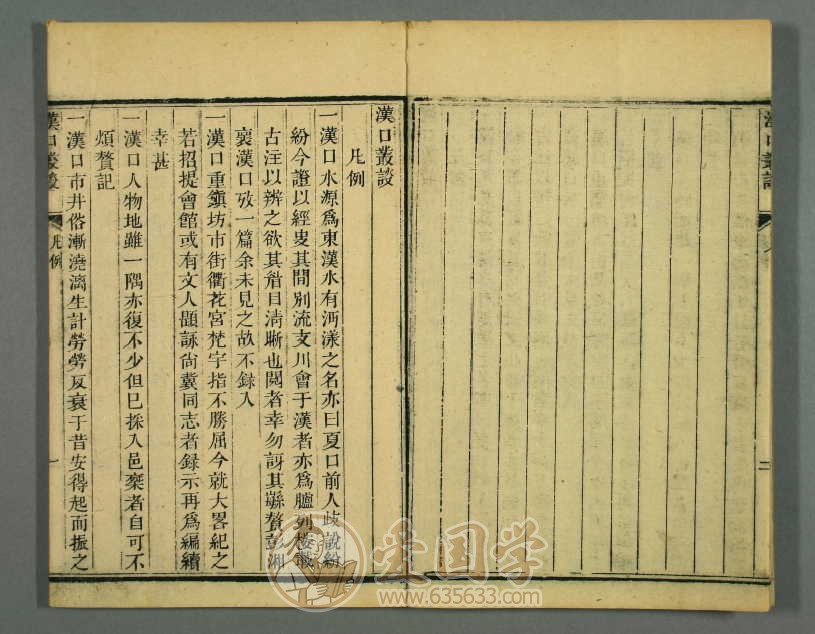 漢口叢談
凡例
一漢口水源爲東漢水有沔漾之名亦曰夏口前人歧說紛
紛今證以經叟其間別流支川會于漢者亦爲臚列稡載
古注以辨之欲其眉目淸晰也閱者幸勿訝其繇贅彭湘
褱漢口攷一篇余未見之故不錄入
一漢口重鎭坊市街衢花宮梵宇指不勝屈今就大畧紀之
若招提會館或有文人題詠尙冀同志者録示再爲編續
幸甚
一漢口人物地雖一隅亦復不少但巳採入邑乗者自可不
煩贅記
一漢口市井俗漸澆漓生計勞勞反衰于昔安得起而振之
漢口叢談
凡例
一
漢口叢談
二
爱国学
www.635633.com